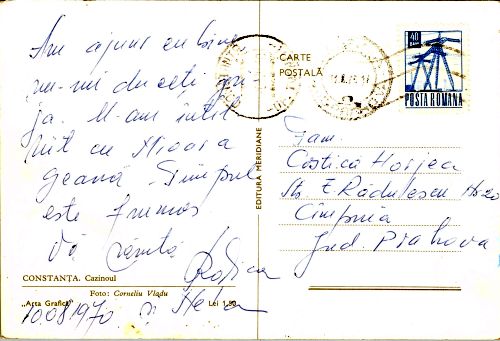 Am ajuns cu bine,
nu-mi duceți gri-
ja. M-am întîl
nit cu
geană. Timpul
este frumos
Vă sărută
Rodica
și
10.08.1970
CONSTANȚA. Cazinoul
Foto: Corneliu Vladu
„Arta Grafică”
Lei 1,50
EDITURA MERIDIANE
CARTE
POȘTALĂ
40
BANI
POSTA ROMANA
Fam.
Costică
Str. E. Rădulescu
Cîmpina
Jud Prahova